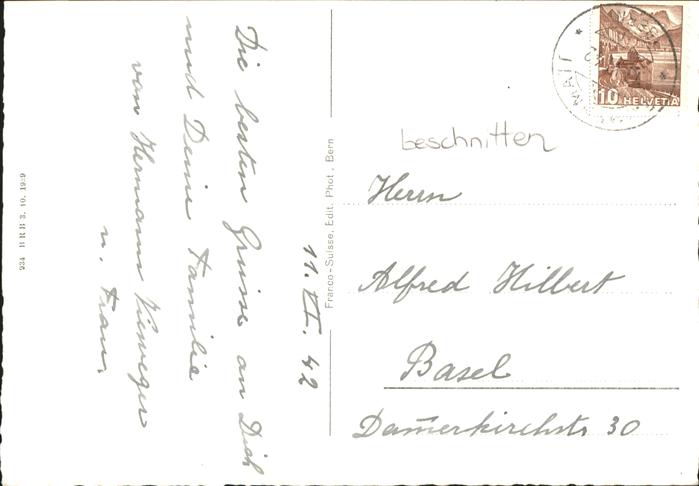 11. VI. 42
Die besten Grüsse an Dich
und Deine Familie
von Hermann Vieweger
u. Frau.
234 BRB 3. 10. 1939
Franco-Suisse, Edit. Phot., Bern
10 HELVETIA
beschnitten
Herrn
Alfred Hilbert
Basel
Dammerkirchstr 30